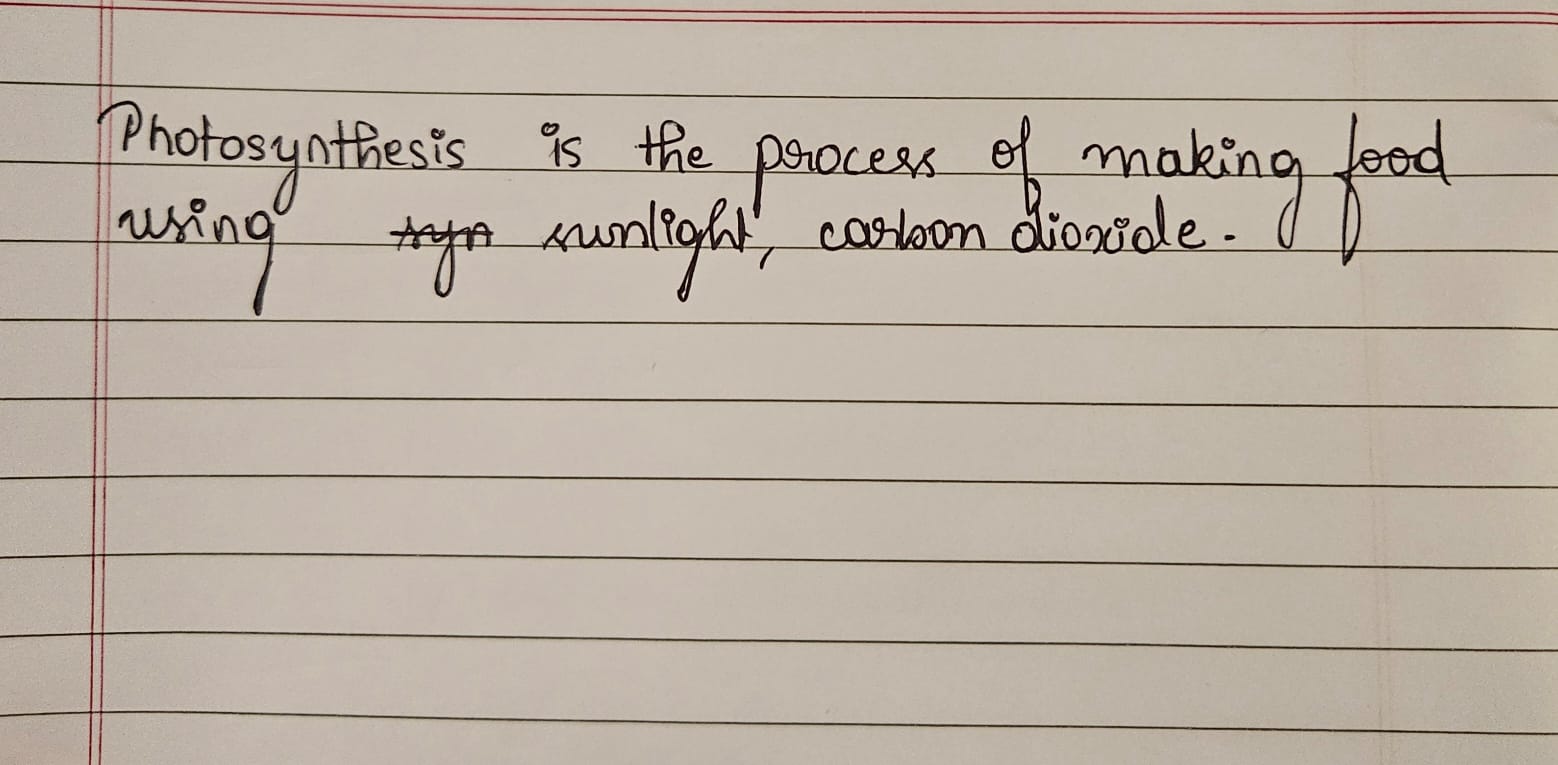 Photosynthesis is the process of making food
using sunlight, carbon dioxide.